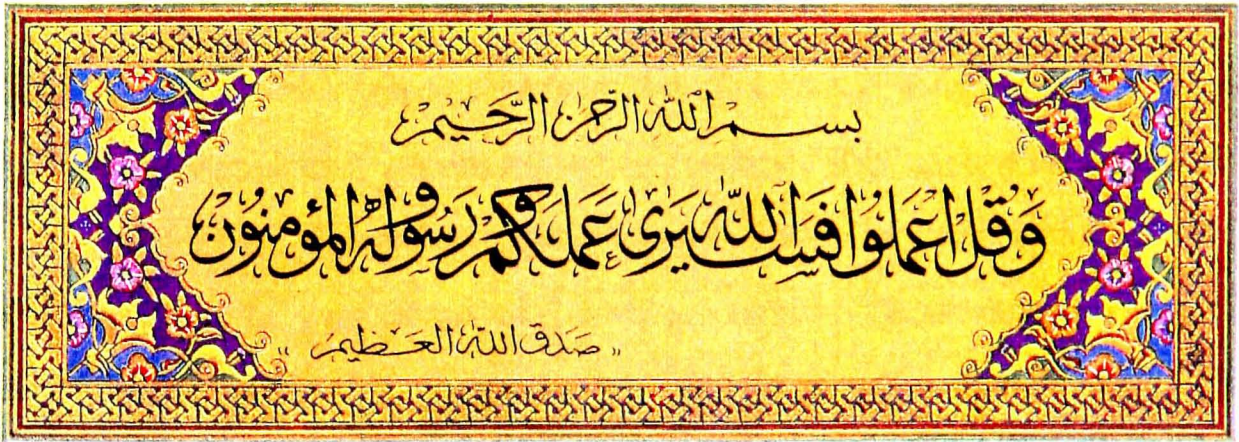 بسم الله الرحمن الرحيم
وَقُلِ اعْمَلُوا فَسَيَرَى اللَّهُ عَمَلَكُمْ وَرَسُولُهُ وَالْمُؤْمِنُونَ
« صدق الله العظيم »